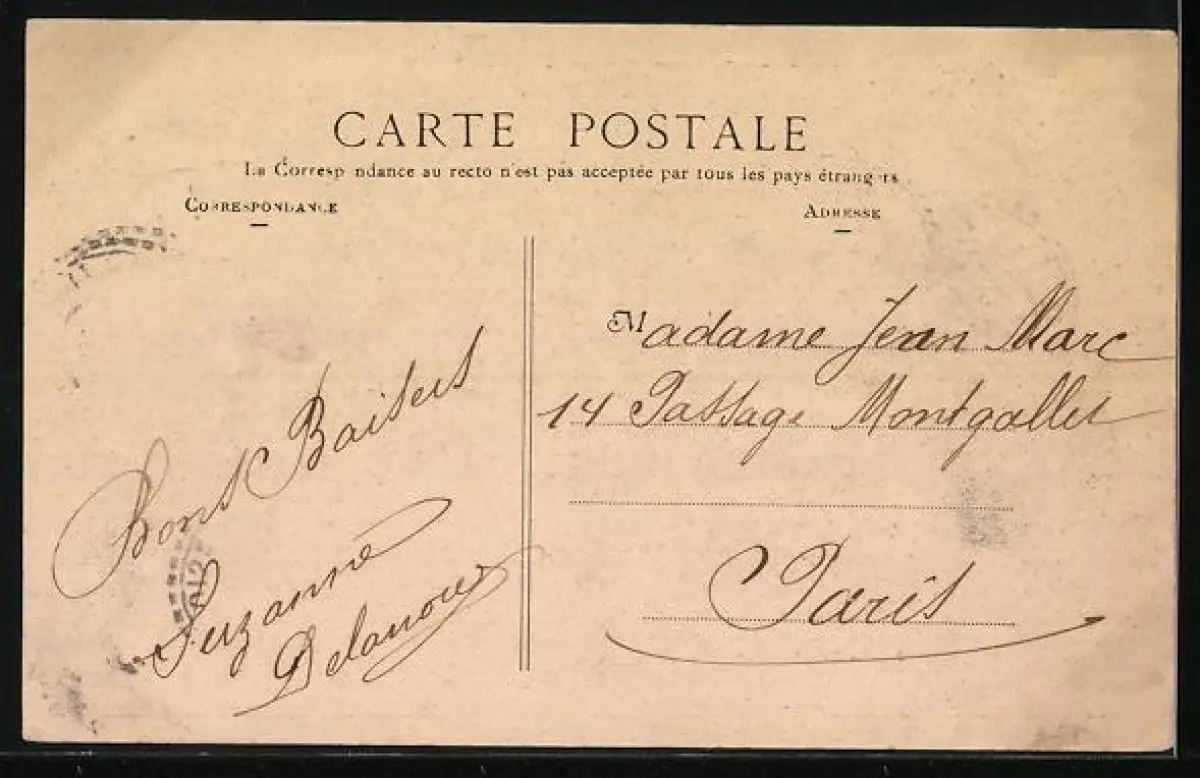 CARTE POSTALE
La Correspondance au recto n'est pas acceptée par tous les pays étrangers
CORRESPONDANCE
ADRESSE
Bons Baisers
Suzanne
Madame Jean Marc
14 Passage Montgallet
Paris